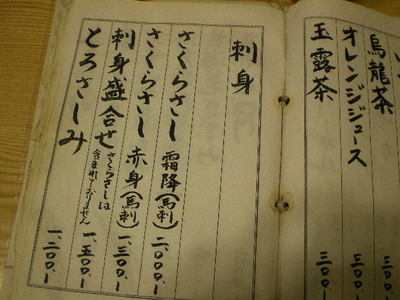 烏龍茶 三〇〇.ー
オレンジジュース 三〇〇.ー
玉露茶 三〇〇.ー
刺身
さくらさし 霜降(馬刺) 二、〇〇〇.ー
さくらさし 赤身(馬刺) 一、三〇〇.ー
刺身盛合せ さくらさしは含まれておりません 一、五〇〇.ー
とろさしみ 一、二〇〇.ー